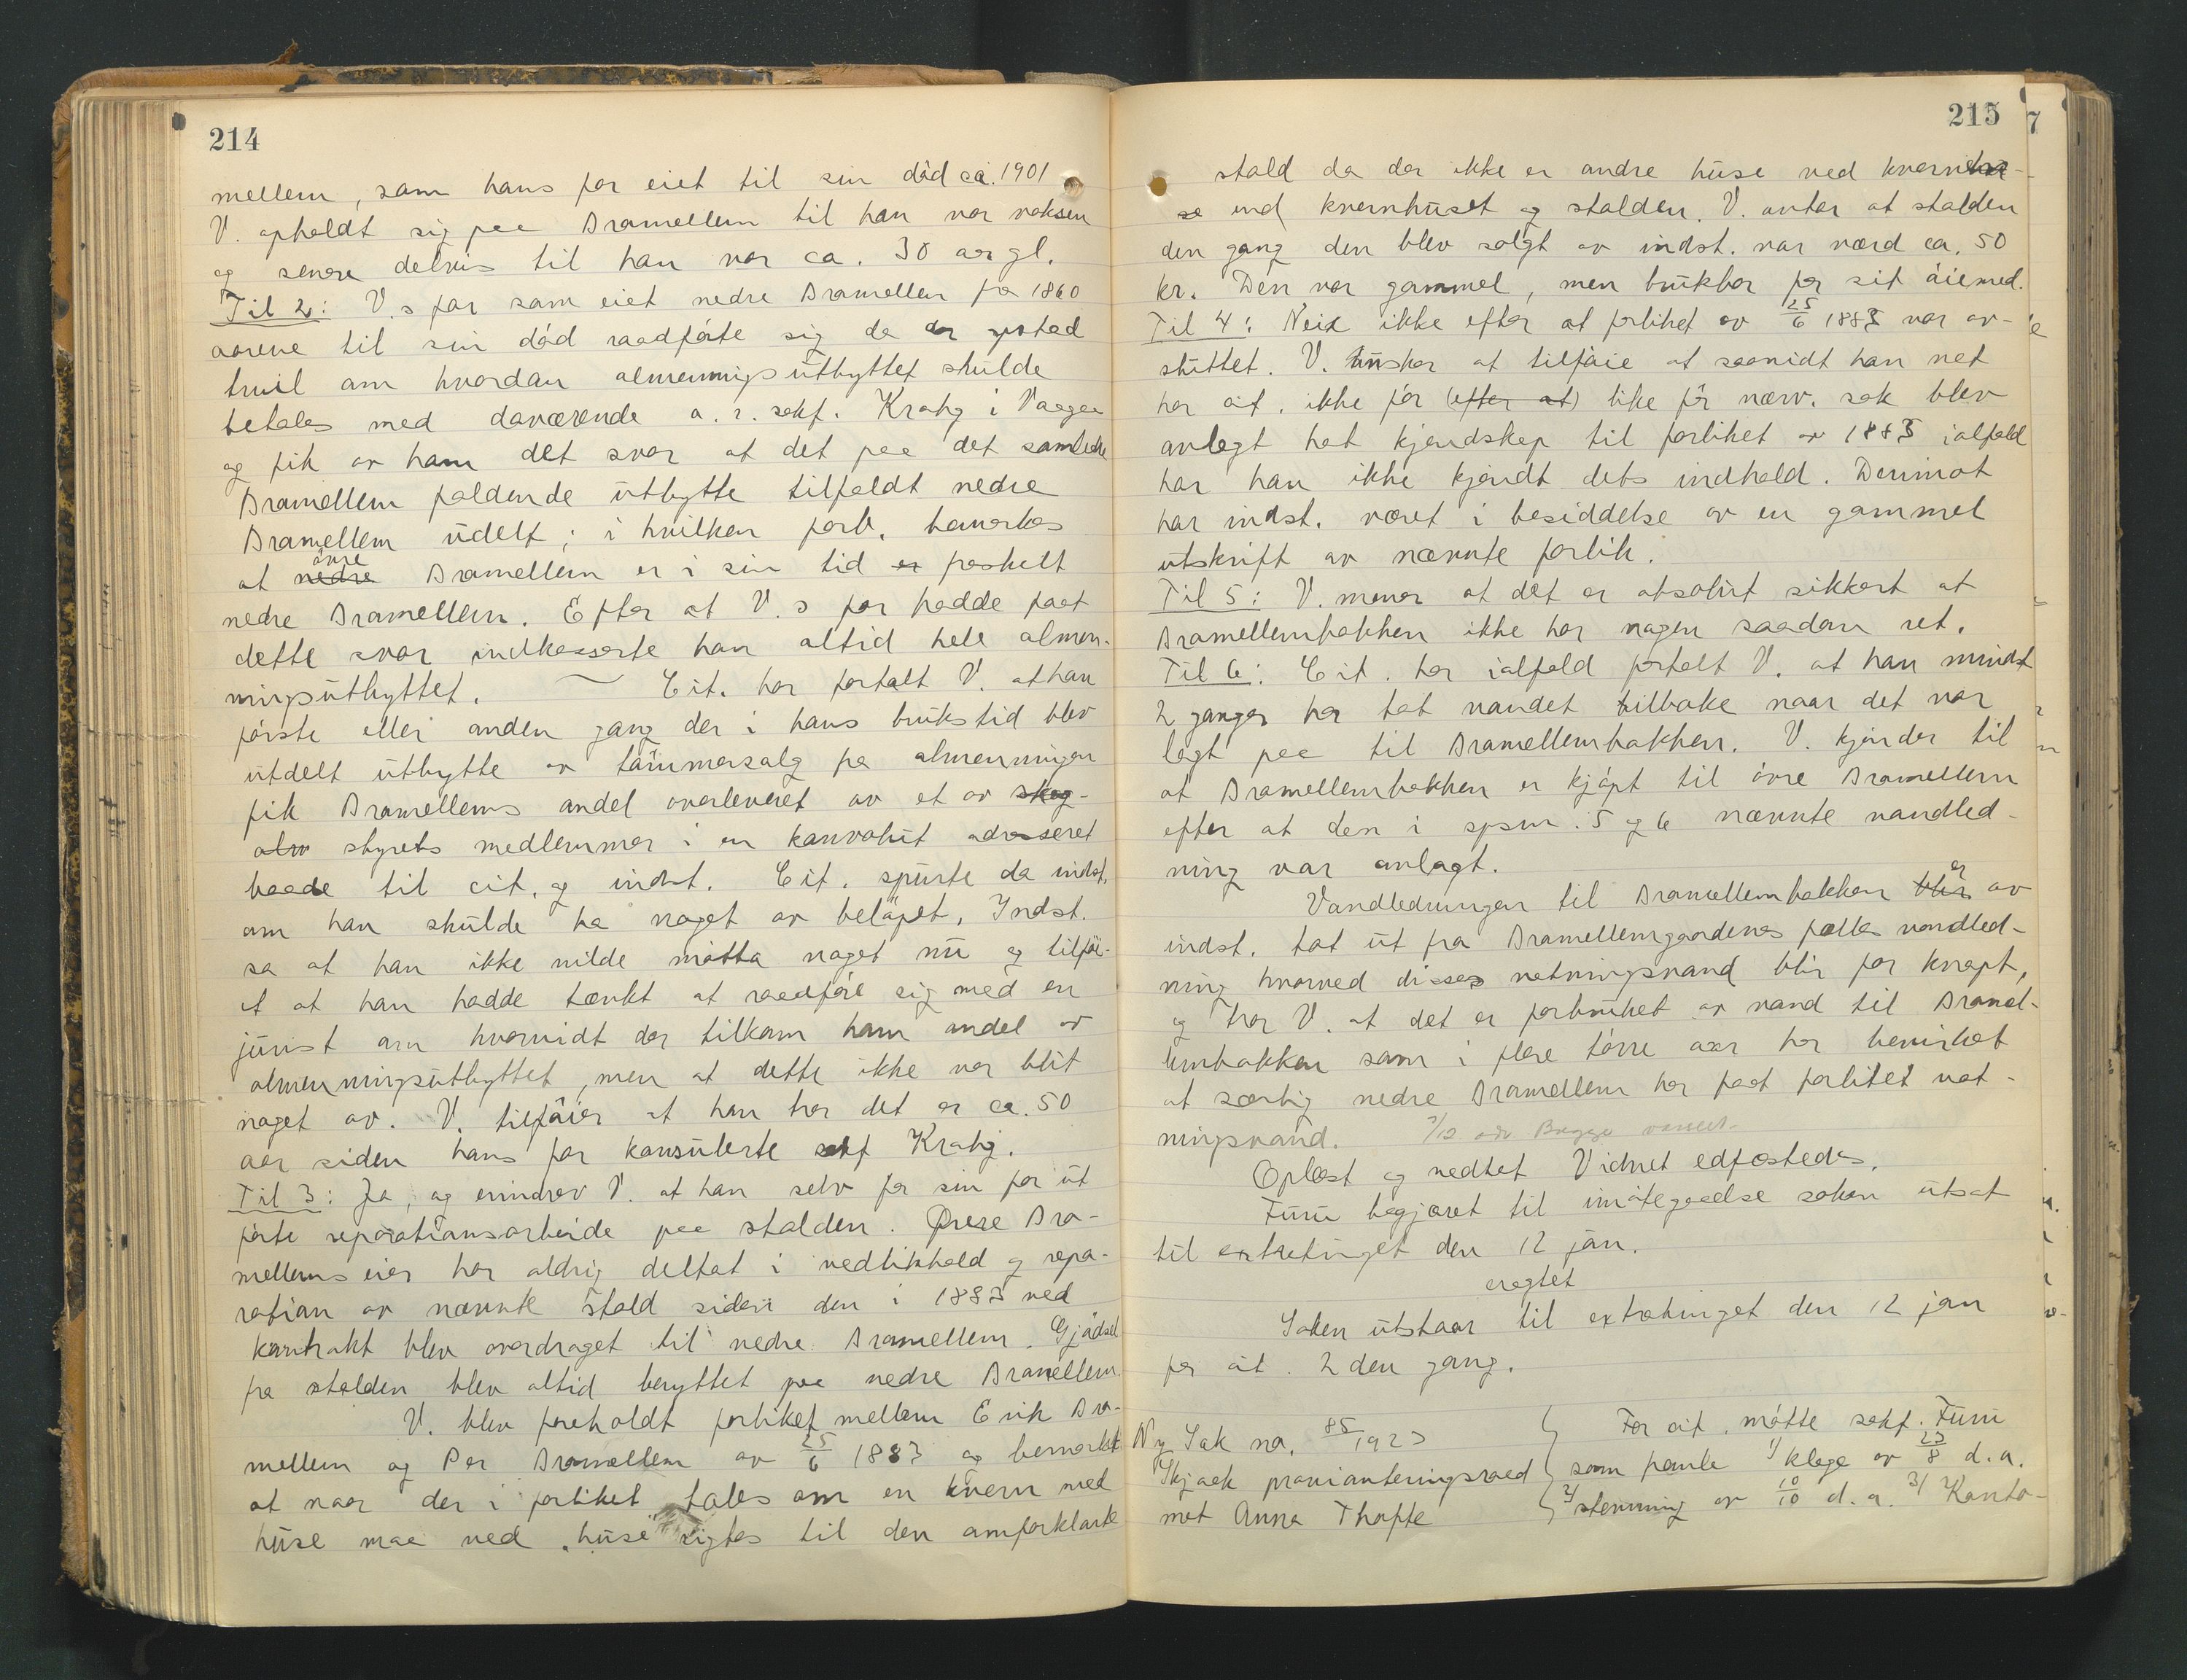 214
mellem, som hans far eiet til sin död ca. 1901
V. opholdt sig paa Bramellem til han var voksen
og senere delvis til han var ca. 30 aar gl.
Til 2: V.s far som eiet nedre Bramellem fra 1860
aarene til sin död raadförte sig da der opstod
tvil om hvordan almenningsutbyttet skulde
betales med daværende o. r. sakf. Krahg i Vaage
og fik av ham det svar at det paa det samlede
Bramellem faldende utbytte tilfaldt nedre
Bramellem udelt; i hvilken forb. bemerkes
at nedre övre Bramellem er i sin tid er fraskilt
nedre Bramellem. Efter at V.s far hadde faat
dette svar indkasserte han altid hele almen-
ningsutbyttet. Cit. har fortalt V. at han
förste eller anden gang der i hans brukstid blev
utdelt utbytte av tömmersalg fra almenningen
fik Bramellems andel overleveret av et av skog-
alm styrets medlemmer i en konvolut adresseret
baade til cit. og indst. Cit. spurte da indst.
om han skulde ha noget av belöpet. Indst.
sa at han ikke vilde motta noget nu og tilföi-
et at han hadde tænkt at raadföre sig med en
jurist om hvorvidt der tilkom ham andel av
almenningsutbyttet, men at dette ikke var blit
noget av. V. tilföier at han tror det er ca. 50
aar siden hans far konsulerte sakf Krahg.
Til 3: Ja, og erindrer V. at han selv for sin far ut
förte reparationsarbeide paa stalden. Övre Bra-
mellems eier har aldrig deltat i vedlikhold og repa-
ration av nævnte stald siden den i 1883 ved
kontrakt blev overdraget til nedre Bramellem. Gjödsel
fra stalden blev altid benyttet paa nedre Bramellem.
V. blev foreholdt forliket mellem Erik Bra-
mellem og Per Bramellem av 25/6 1883 og bemerket
at naar der i forliket tales om en kvern med
huse maa ved "huse" sigtes til den omforklarte
215
7
stald da der ikke er andre huse ved kvernhu-
se end kvernhuset og stalden. V. antar at stalden
den gang den blev solgt av indst. var værd ca. 50
kr. Den var gammel, men brukbar for sit öiemed.
Til 4: Nei ikke efter at forliket av 25/6 1883 var av-
sluttet. V. önsker at tilföie at saavidt han vet
har cit. ikke för (efter at) like för nærv. sak blev
anlagt hat kjendskap til forliket av 1883 ialfald
har han ikke kjendt dets indhold. Derimot
har indst. været i besiddelse av en gammel
utskrift av nævnte forlik.
Til 5: V. mener at det er absolut sikkert at
Bramellembakken ikke har nogen saadan ret.
Til 6: Cit. har ialfald fortalt V. at han mindst
2 ganger har tat vandet tilbake naar det var
lagt paa til Bramellembakken. V. kjender til
at Bramellembakken er kjöpt til övre Bramellem
efter at den i spsm. 5 og 6 nævnte vandled-
ning var anlagt.
Vandledningen til Bramellembakken blir er av
indst. tat ut fra Bramellemgaardenes fælles vandled-
ning hvorved disses vatningsvand blir for knapt,
og tror V. at det er forbruket av vand til Bramel-
lembakken som i flere törre aar har bevirket
at særlig nedre Bramellem har faat forlitet vat-
ningsvand.
Oplæst og vedtat Vidnet edfæstedes.
Furu begjæret til imötegaaelse saken utsat
til extratinget den 12 jan.
eragtet
Saken utstaar til extratinget den 12 jan
for cit. 2den gang.
Ny Sak no. 85/1923
Skjaak provianteringsraad
mot Anna Thofte
For cit. mötte sakf. Furu
som femla 1/ klage av 23/8 d.a.
2/ stevning av 10/10 d.a. 3/ Konto-